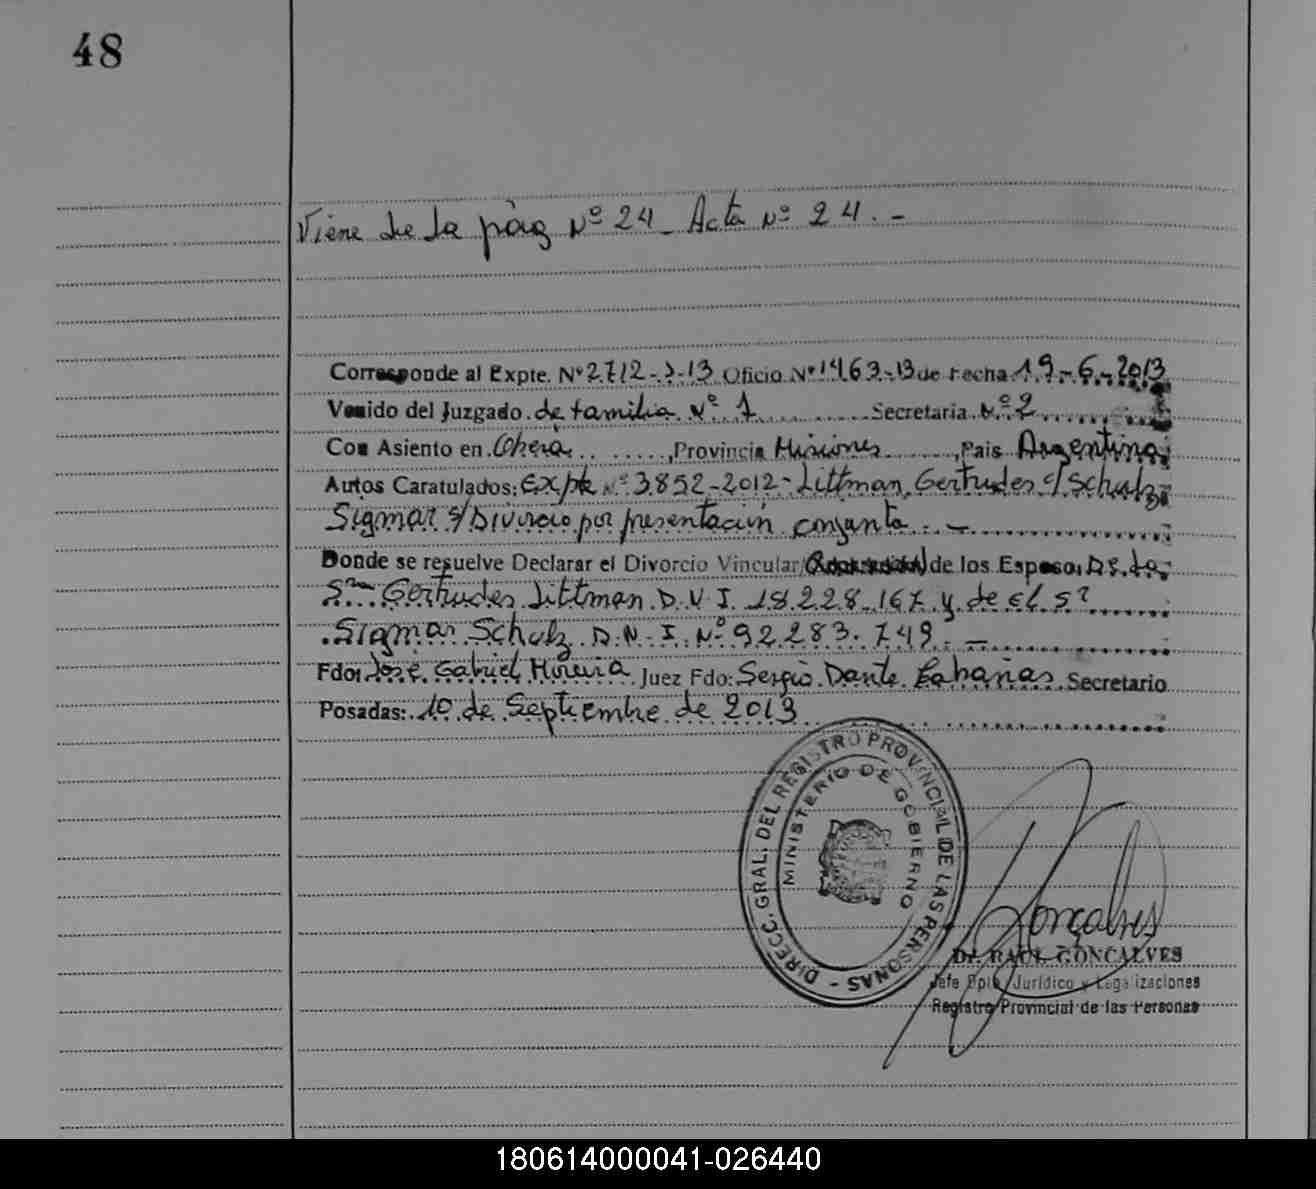 48
Viene de la pág Nº 24 - Acta Nº 24. -
Corresponde al Expte. Nº 2712-J-13 Oficio Nº 1463-13 de Fecha 19-6-2013
Venido del Juzgado de familia Nº 1 Secretaria Nº 2
Con Asiento en Oberá, Provincia Misiones, Pais Argentina
Autos Caratulados: Expte Nº 3852-2012 - Littman, Gertrudes c/ Schulz
Sigmar s/ Divorcio por presentación conjunta. -
Donde se resuelve Declarar el Divorcio Vincular de los Esposos De la
Sra Gertrudes Littman D.N.I. 18.228.167 y de el Sr
Sigmar Schulz D.N.I. Nº 92.283.749. -
Fdo: José Gabriel Moreira Juez Fdo: Sergio Dante Cabañas Secretario
Posadas: 10 de Septiembre de 2013
DIRECC. GRAL. DEL REGISTRO PROVINCIAL DE LAS PERSONAS -
MINISTERIO DE GOBIERNO
Gonçalves
Dr. RAUL GONCALVES
Jefe Dpto. Jurídico y Legalizaciones
Registro Provincial de las Personas
180614000041-026440